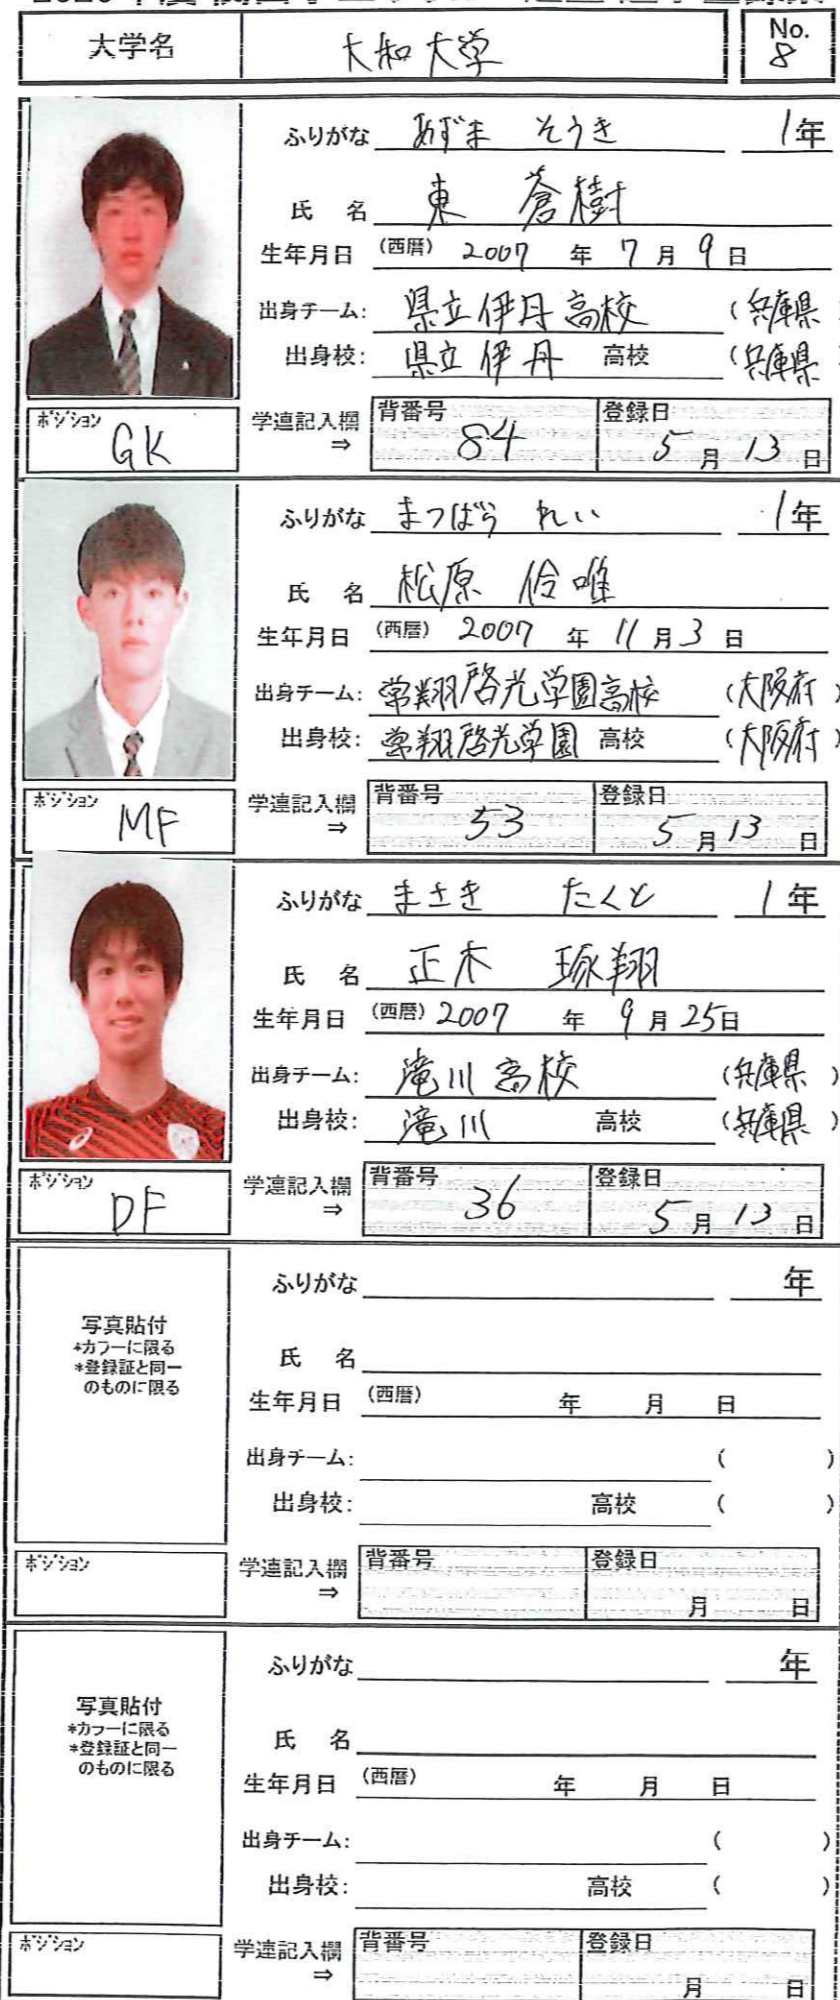 大学名 大和大学 No. 8
ふりがな あずま そうき 1年
氏 名 東 蒼樹
生年月日 (西暦) 2007 年 7 月 9 日
出身チーム: 県立伊丹高校 (兵庫県
出身校: 県立伊丹 高校 (兵庫県
ポジション GK 学連記入欄 ⇒ 背番号 84 登録日 5 月 13 日
ふりがな まつばら れい 1年
氏 名 松原 伶唯
生年月日 (西暦) 2007 年 11 月 3 日
出身チーム: 常翔啓光学園高校 (大阪府)
出身校: 常翔啓光学園 高校 (大阪府)
ポジション MF 学連記入欄 ⇒ 背番号 53 登録日 5 月 13 日
ふりがな まさき たくと 1年
氏 名 正木 琢翔
生年月日 (西暦) 2007 年 9 月 25日
出身チーム: 滝川高校 (兵庫県)
出身校: 滝川 高校 (兵庫県)
ポジション DF 学連記入欄 ⇒ 背番号 36 登録日 5 月 13 日
ふりがな 年
写真貼付
*カラーに限る
*登録証と同一
のものに限る
氏 名
生年月日 (西暦) 年 月 日
出身チーム: ( )
出身校: 高校 ( )
ポジション 学連記入欄 ⇒ 背番号 登録日 月 日
ふりがな 年
写真貼付
*カラーに限る
*登録証と同一
のものに限る
氏 名
生年月日 (西暦) 年 月 日
出身チーム: ( )
出身校: 高校 ( )
ポジション 学連記入欄 ⇒ 背番号 登録日 月 日